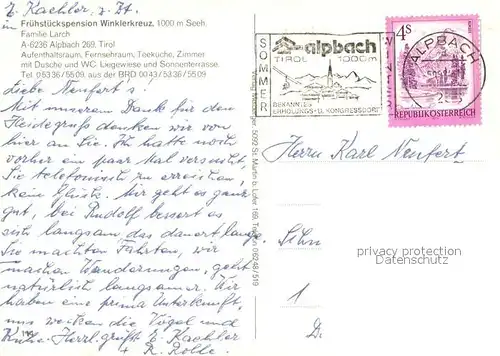 E. Kaehler, z. Zt.
in Frühstückspension Winklerkreuz, 1000 m Seeh.
Familie Larch
A-6236 Alpbach 269, Tirol
Aufenthaltsraum, Fernsehraum, Teeküche, Zimmer
mit Dusche und WC Liegewiese und Sonnenterrasse.
Tel 05336/5509, aus der BRD 0043/5336/5509
Liebe Neufert's!
Mit unserem Dank für den
Heidegruß denken wir von
hier an Sie. Ich hatte noch
vorher ein paar Mal versucht,
Sie telefonisch zu erreichen,
kein Glück. Mir geht es ganz
gut, bei Rudolf bessert es
sich langsam, das dauert lange.
Sie machten Fahrten, wir
machen Wanderungen, geht
natürlich langsamer. Wir
haben eine prima Unterkunft,
uns wecken die Vögel und
Kühe. Herzl. grüßt E. Kaehler
R. Rolle
5092 St. Martin b. Lofer 169, Telefon 06248/519
SOMMER
alpbach
TIROL 1000m
BEKANNTES
ERHOLUNGS- U. KONGRESSDORF
ALPBACH
4S
REPUBLIK ÖSTERREICH
Herrn Karl Neufert
1
privacy protection
watermark